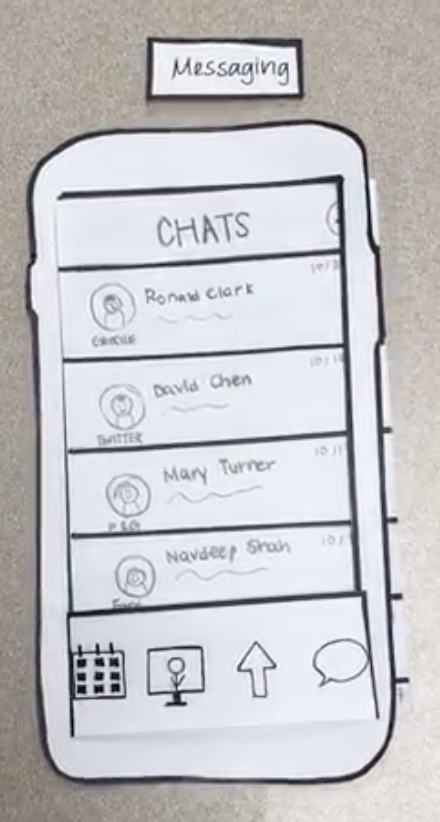 Messaging
CHATS
Ronald Clark
GOOGLE
David Chen
TWITTER
Mary Turner
P&G
Navdeep Shah